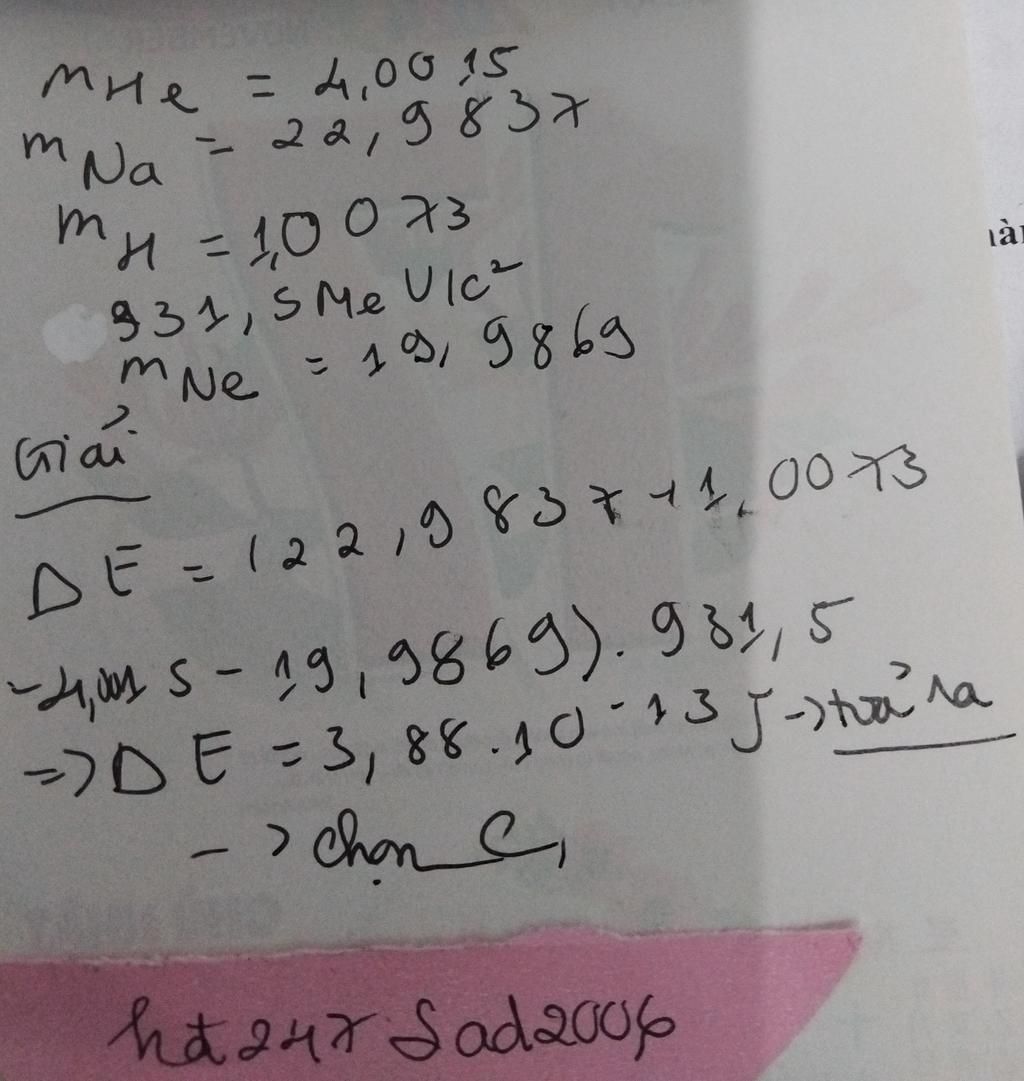 mHe = 4,0015
mNa = 22,9837
mH = 1,0073
931,5 MeV/c²
mNe = 19,9869
Giải
ΔE = (22,9837 + 1,0073
- 4,0015 - 19,9869). 931,5
=> ΔE = 3,88.10⁻¹³ J -> toả ra
-> chọn C,
ht247 Sad2006